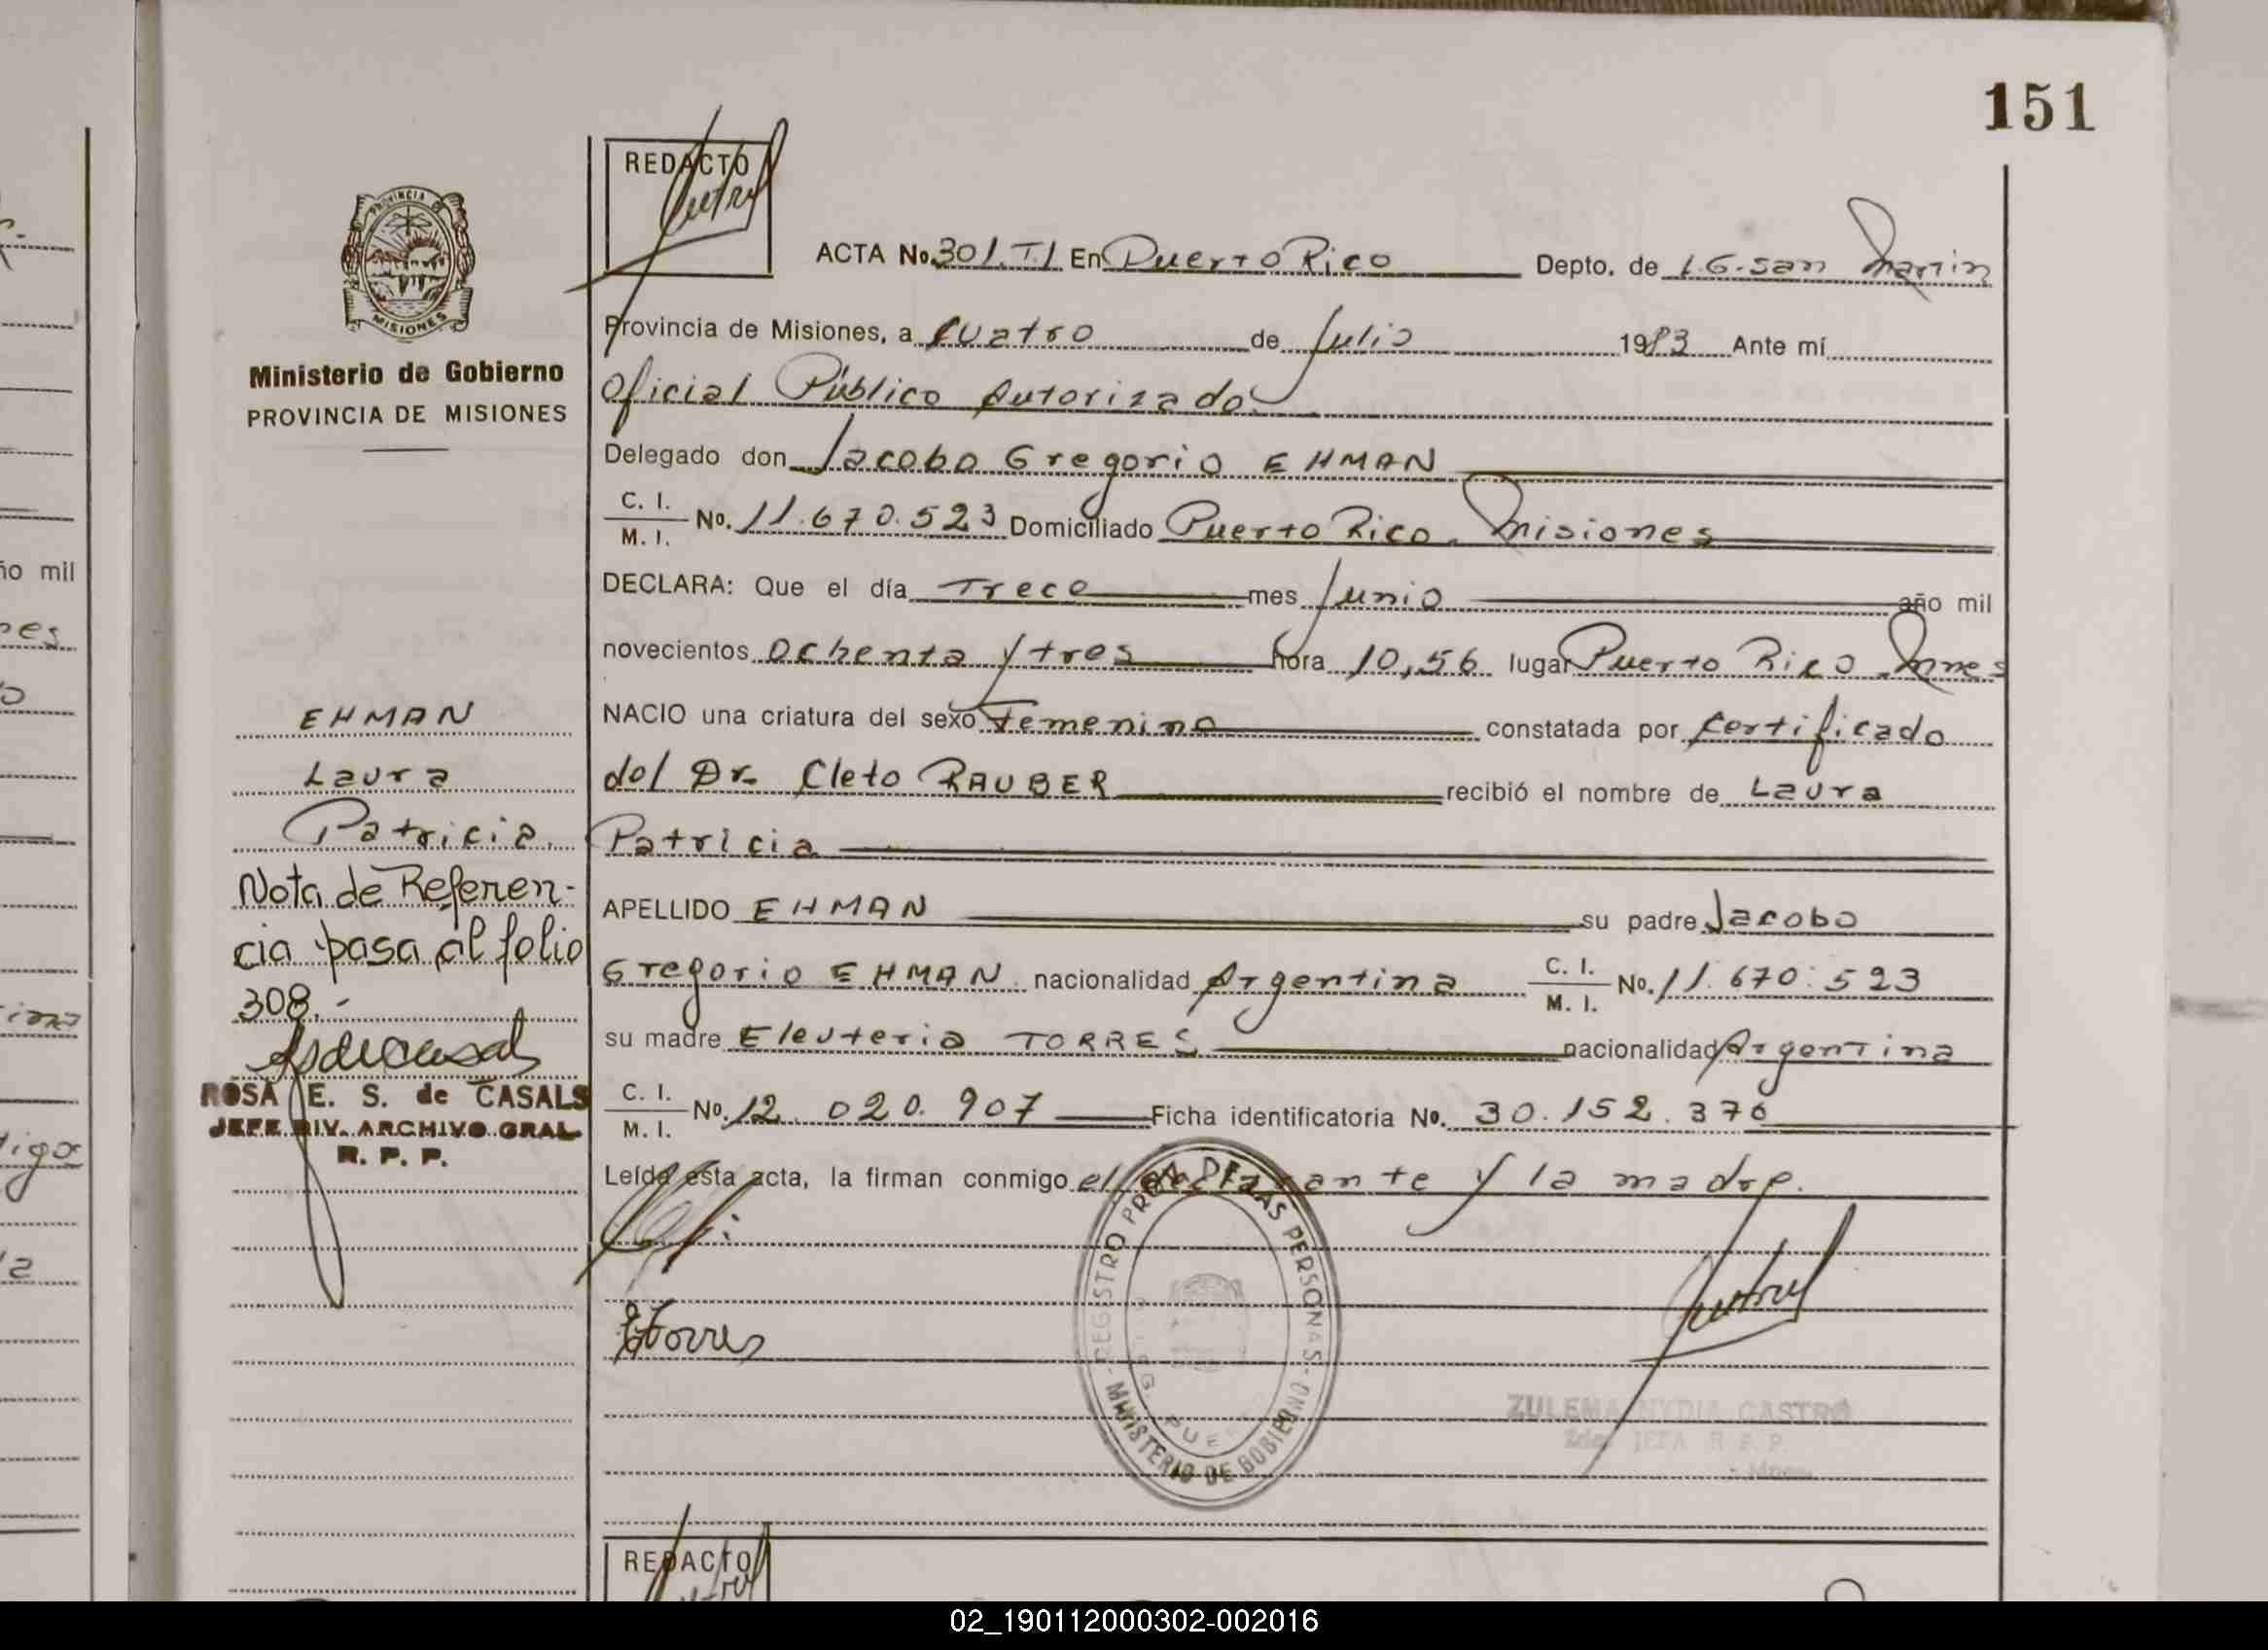 151
REDACTO
ACTA No. 301.T.I En Puerto Rico Depto. de L.G. San Martin
Provincia de Misiones, a Cuatro de Julio 1983 Ante mí
Oficial Público Autorizado
Delegado don Jacobo Gregorio EHMAN
C. I. / M. I. No. 11.670.523 Domiciliado Puerto Rico. Misiones
DECLARA: Que el día Trece mes Junio año mil
novecientos Ochenta y tres hora 10,56 lugar Puerto Rico. Mnes
NACIO una criatura del sexo Femenino constatada por Certificado
del Dr. Cleto RAUBER recibió el nombre de Laura
Patricia
APELLIDO EHMAN su padre Jacobo
Gregorio EHMAN nacionalidad Argentina C. I. / M. I. No. 11.670.523
su madre Eleuteria TORRES nacionalidad Argentina
C. I. / M. I. No. 12.020.907 Ficha identificatoria No. 30.152.376
Leída esta acta, la firman conmigo el declarante y la madre.
ETorres
REGISTRO PROV. DE LAS PERSONAS
MINISTERIO DE GOBIERNO
ZULEMA NYDIA CASTRO
2da. JEFA R.P.P.
Mnes.
PROVINCIA DE
MISIONES
Ministerio de Gobierno
PROVINCIA DE MISIONES
EHMAN
Laura
Patricia.
Nota de Referen-
cia pasa al folio
308.-
ROSA E. S. de CASALS
JEFE DIV. ARCHIVO GRAL
R. P. P.
REDACTO
ño mil
02_190112000302-002016